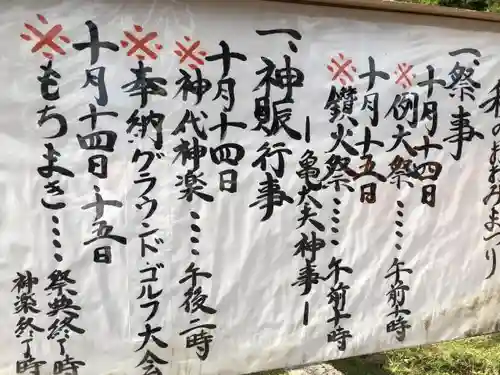 おおみまつり
一、祭事
十月十四日
※例大祭……午前十時
十月十五日
※鑚火祭……午前十時
―亀太夫神事―
一、神賑行事
十月十四日
※神代神楽……午後一時
※奉納グラウンドゴルフ大会
十月十四日・十五日
※もちまき……祭典終了時
神楽終了時